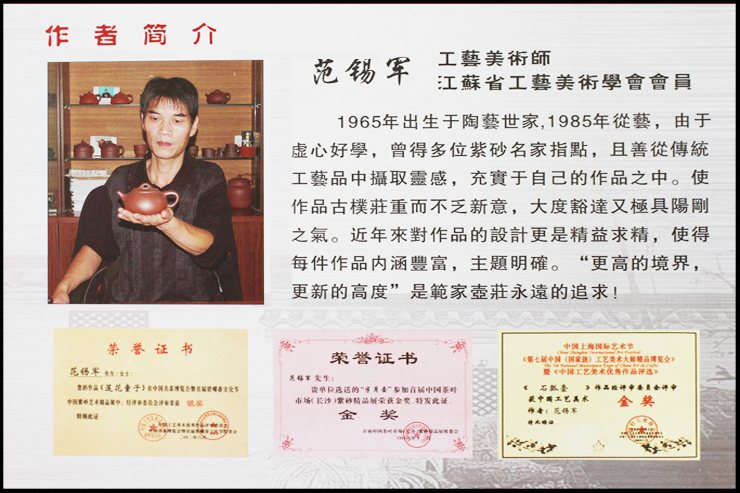 作者简介
范锡军
工藝美術師
江蘇省工藝美術學會會員
1965年出生于陶藝世家,1985年從藝，由于
虛心好學，曾得多位紫砂名家指點，且善從傳統
工藝品中攝取靈感，充實于自己的作品之中。使
作品古樸莊重而不乏新意，大度豁達又極具陽剛
之氣。近年來對作品的設計更是精益求精，使得
每件作品内涵豐富，主題明確。“更高的境界，
更新的高度”是範家壺莊永遠的追求!
荣誉证书
范锡军 先生/女士:
银奖
特颁此证
荣誉证书
范锡军 先生:
市场(长沙)紫砂精品展荣获金奖。特发此证。
金奖
中国上海国际艺术节
China Shanghai International Art Festival
《第七届中国（国家级）工艺美术大师精品博览会》
暨《中国工艺美术优秀作品评选》
《石瓢壶》作品经评审委员会评审
获中国工艺美术 金奖
作者: 范锡军
特此颁证